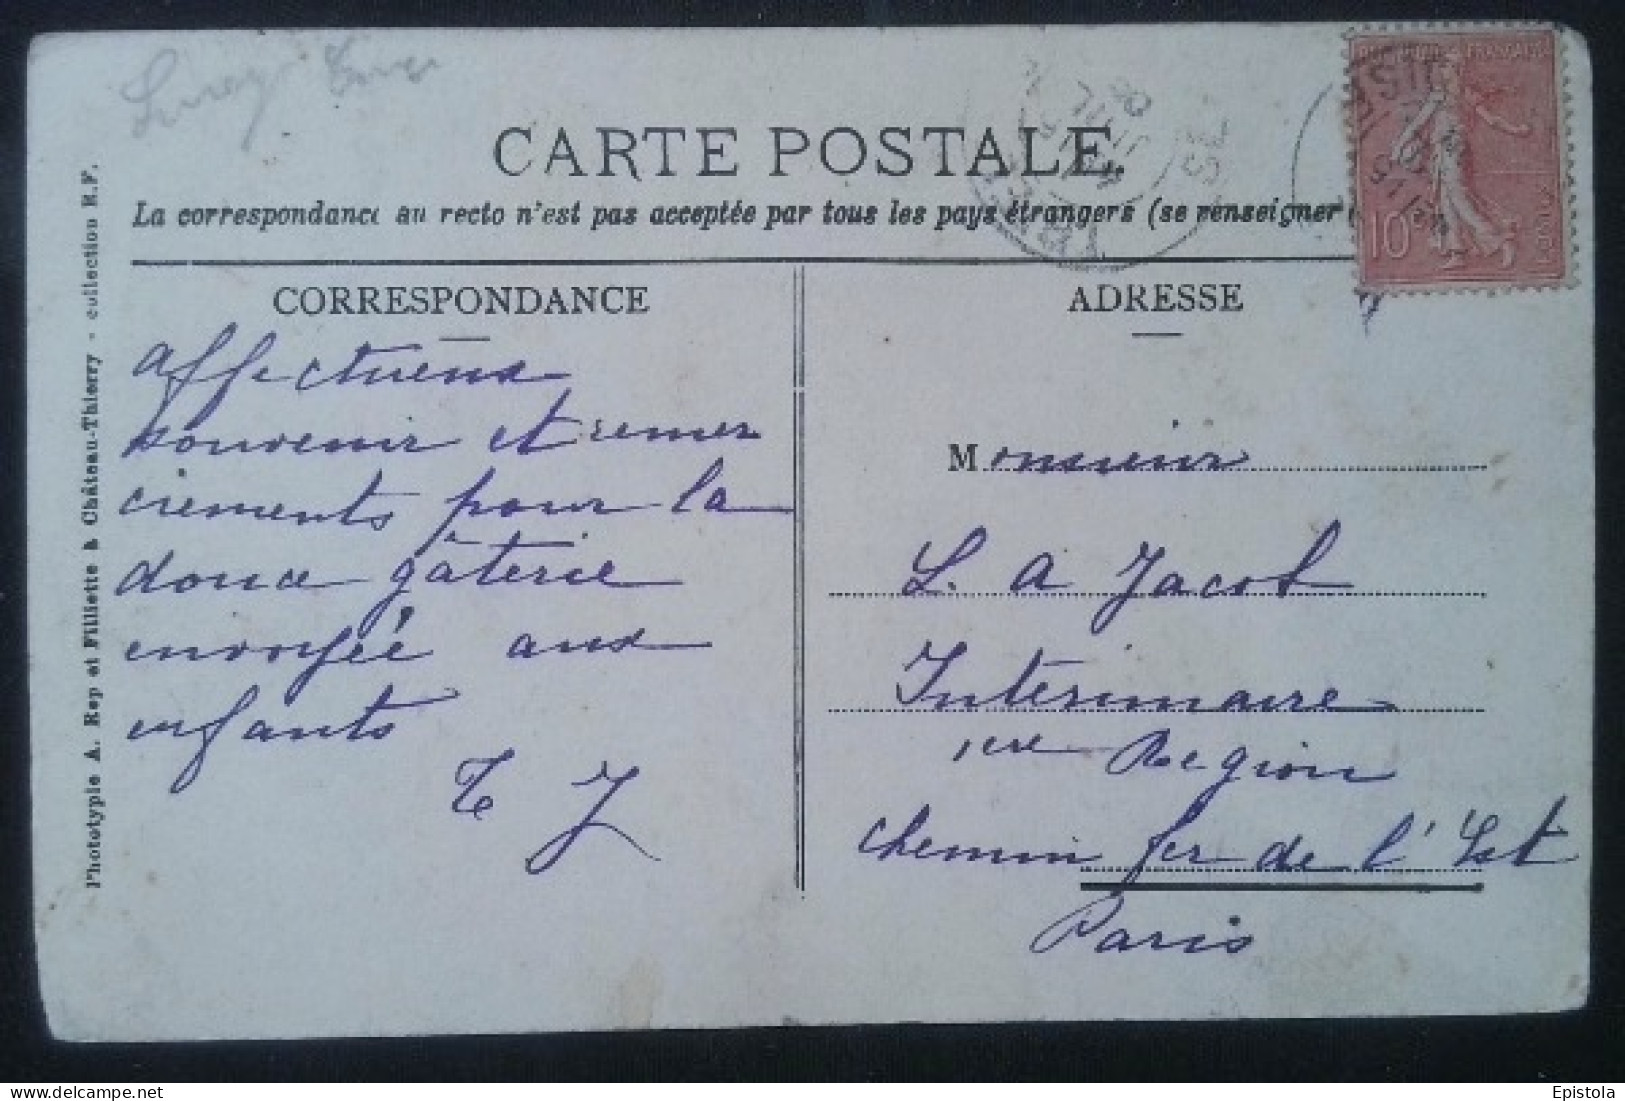 CARTE POSTALE
La correspondance au recto n'est pas acceptée par tous les pays étrangers (se renseigner
RÉPUBLIQUE FRANÇAISE
10
POSTES
JUIL
06
CORRESPONDANCE
affectueux
souvenir et remer
ciements pour la
douce gâterie
envoyée aux
enfants
J
ADRESSE
Monsieur
L. A Jacot
Intérimaire
1ere Region
chemin fer de l'Est
Paris
Phototypie A. Rep et Filliette à Château-Thierry - collection R.F.
Epistola